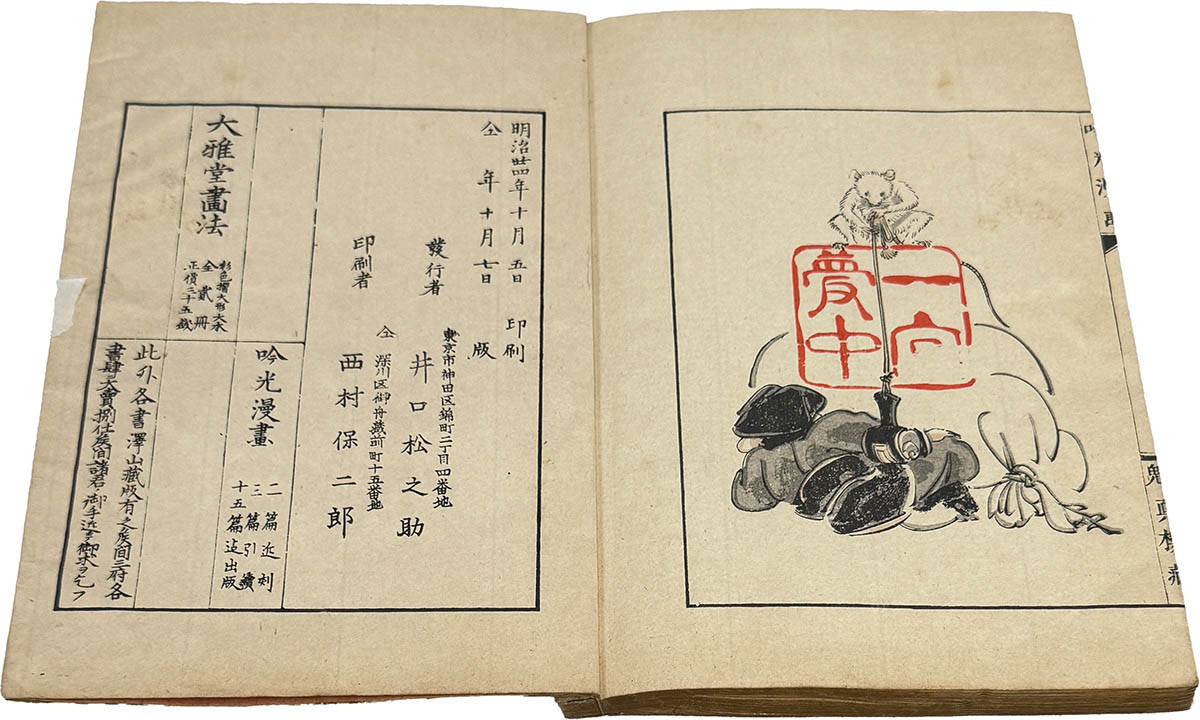 一向
夢中
明治廿四年十月五日 印刷
仝 年 十月七日 版
發行者
東京市神田区錦町二丁目四番地
井口松之助
印刷者
仝 深川区御舟蔵前町十五番地
西村保二郎
大雅堂畫法
彩色摺大形大本
全貳冊
正價三十五銭
吟光漫畫
二篇近刻
三篇引續
十五篇迠出版
此外各書澤山蔵版有之候間三府各
書肆大賣捌仕候間諸君御手近 御求ヲ乞フ